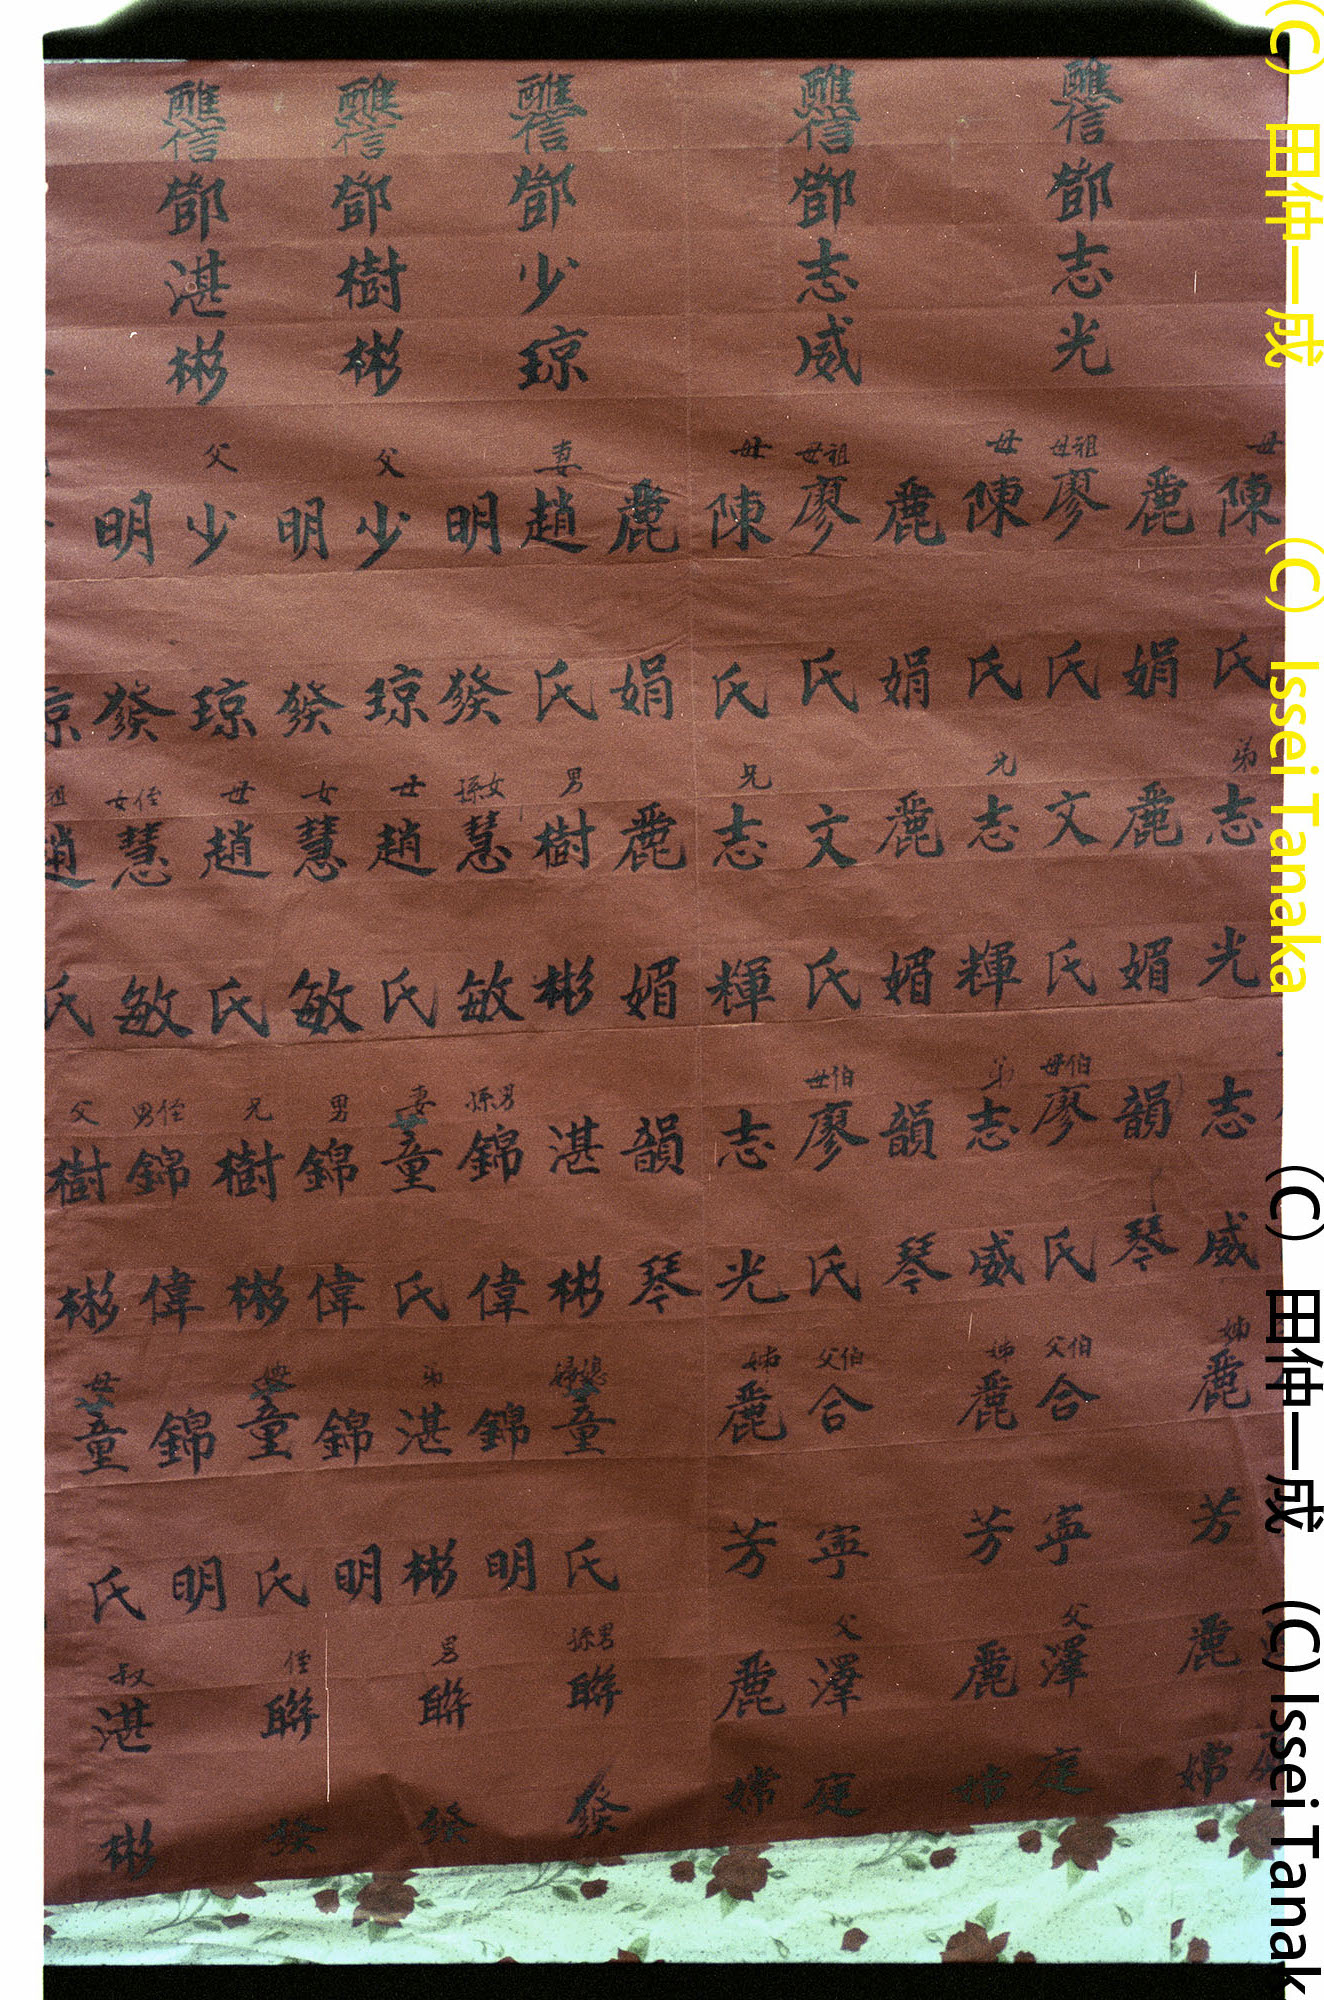 醮信鄧志光
醮信鄧志威
醮信鄧少琼
醮信鄧樹彬
醮信鄧湛彬
母陳氏弟志光志威姊麗芳麗嫦
麗娟麗媚韻琴
祖母廖氏文氏伯母廖氏伯父合寧父澤庭
母陳氏兄志輝弟志威姊麗芳麗嫦
麗娟麗媚韻琴
祖母廖氏文氏伯母廖氏伯父合寧父澤庭
母陳氏兄志輝志光姊麗芳麗嫦
麗娟麗媚韻琴
妻趙氏男樹彬湛彬媳婦董氏男孫聯發
明發女孫慧敏男孫錦偉錦明
父少琼母趙氏妻董氏弟湛彬男聯發
明發女慧敏男錦偉錦明
父少琼母趙氏兄樹彬嫂董氏侄聯發
明發侄女慧敏侄男錦偉錦明
琼祖趙氏父樹彬母董氏叔湛彬
(C) 田仲一成 (C) Issei Tanaka
(C) 田仲一成 (C) Issei Tanak